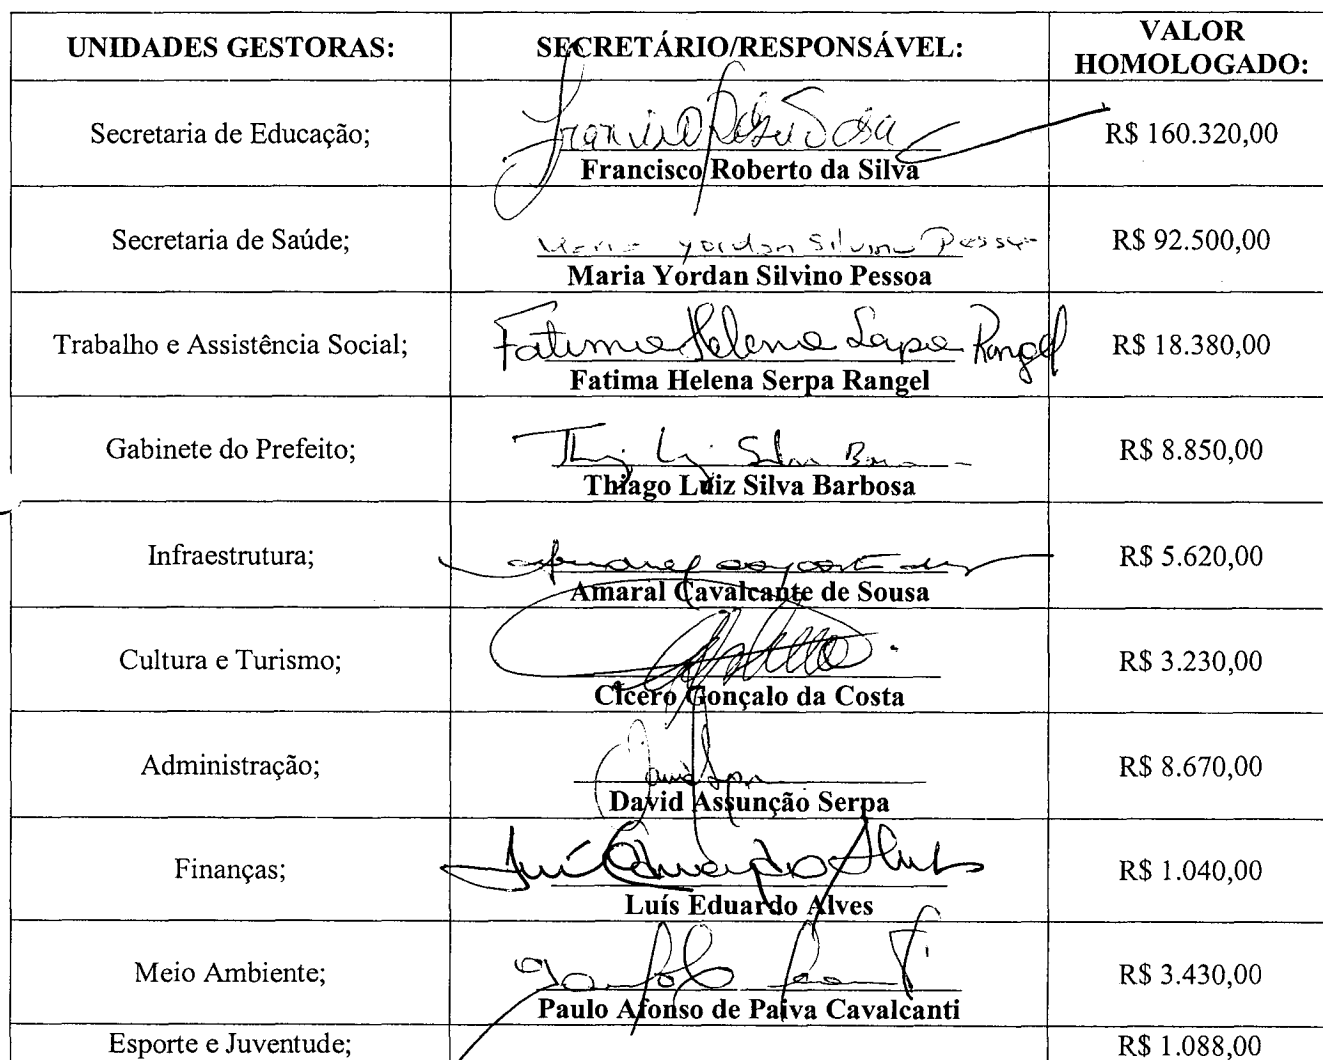 UNIDADES GESTORAS: SECRETÁRIO/RESPONSÁVEL: VALOR HOMOLOGADO:
Secretaria de Educação; Francisco Roberto da Silva R$ 160.320,00
Secretaria de Saúde; Maria Yordan Silvino Pessoa
Maria Yordan Silvino Pessoa R$ 92.500,00
Trabalho e Assistência Social; Fatima Helena Serpa Rangel
Fatima Helena Serpa Rangel R$ 18.380,00
Gabinete do Prefeito; Thiago Luiz Silva Barbosa R$ 8.850,00
Infraestrutura; Amaral Cavalcante de Sousa R$ 5.620,00
Cultura e Turismo; Cícero Gonçalo da Costa R$ 3.230,00
Administração; David Assunção Serpa R$ 8.670,00
Finanças; Luís Eduardo Alves R$ 1.040,00
Meio Ambiente; Paulo Afonso de Paiva Cavalcanti R$ 3.430,00
Esporte e Juventude; R$ 1.088,00